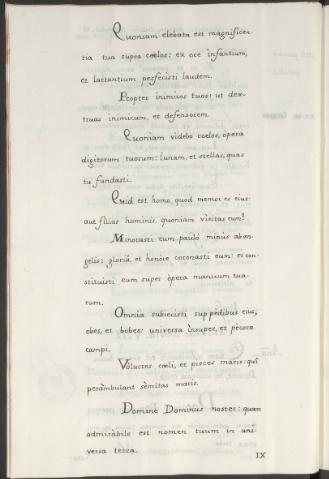 Quoniam elebata est magnificen-
tia tua supra coelos: ex ore infantium,
et lactantium perfecisti laudem.
Propter inimicos tuos: ut des-
truas inimicum, et defensorem.
Quoniam videbo coelos, opera
digitorum tuorum: lunam, et stellas, quas
tu fundasti.
Quid est homo, quod memor es eius:
aut filius hominis, quoniam visitas eum?
Minorasti eum pauló minús ab an-
gelis; gloriâ, et honóre coronasti eum: et con-
stituisti eum super ópera manuum tua-
rum.
Omnia subiecisti sup pédibus eius,
obes, et bobes: universa ínsuper, et pécora
campi.
Volucres coeli, et pisces maris: qui
perámbulant sémitas maris.
Domine Dominus noster: quam
admirábile est nomen tuum in uni-
versa terra.
IX